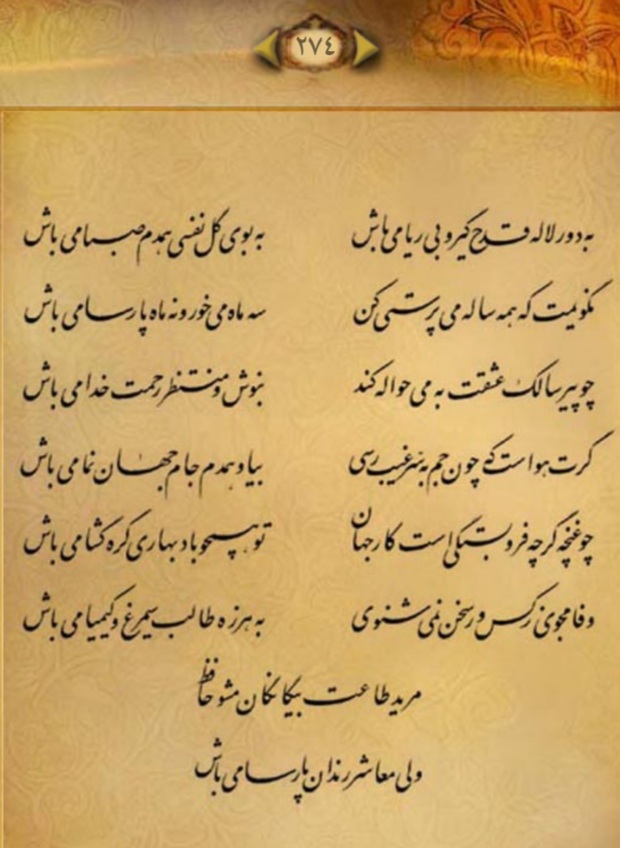 ٢٧٤
به دور لاله قدح گیر و بی ریا می باش
به بوی گل نفسی همدم صبا می باش
نگویمت که همه ساله می پرستی کن
سه ماه می خور و نه ماه پارسا می باش
چو پیر سالک عشقت به می حواله کند
بنوش و منتظر رحمت خدا می باش
گرت هواست که چون جم به سر غیب رسی
بیا و همدم جام جهان نما می باش
چو غنچه گرچه فروبستگی است کار جهان
تو همچو باد بهاری گره گشا می باش
وفا مجوی ز کس ور سخن نمی شنوی
به هرزه طالب سیمرغ و کیمیا می باش
مرید طاعت بیگانگان مشو حافظ
ولی معاشر رندان پارسا می باش